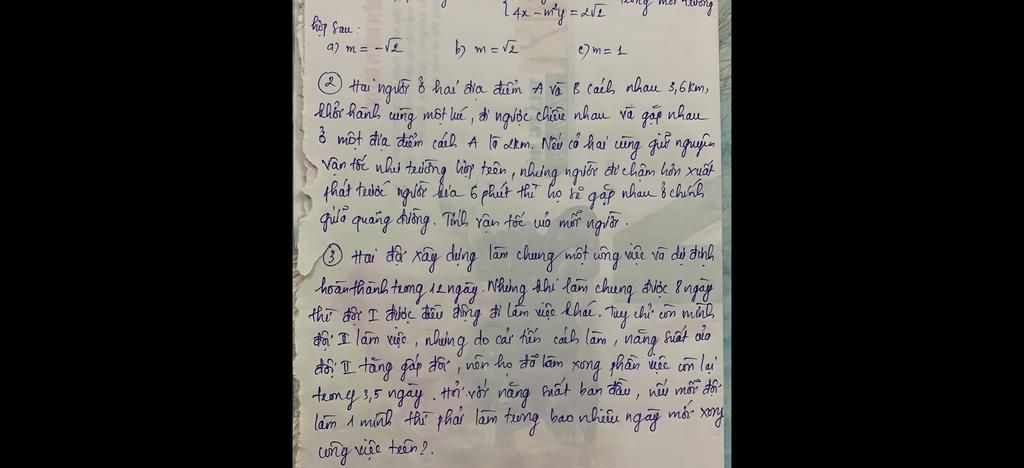 {4x - m²y = 2√2 trong mỗi trường
hợp sau:
a) m = -√2 b) m = √2 c) m = 1
② Hai người ở hai địa điểm A và B cách nhau 3,6 km,
khởi hành cùng một lúc, đi ngược chiều nhau và gặp nhau
ở một địa điểm cách A là 2km. Nếu cả hai cùng giữ nguyên
vận tốc như trường hợp trên, nhưng người đi chậm hơn xuất
phát trước người kia 6 phút thì họ sẽ gặp nhau ở chính
giữa quãng đường. Tính vận tốc của mỗi người.
③ Hai đội xây dựng làm chung một công việc và dự định
hoàn thành trong 12 ngày. Nhưng khi làm chung được 8 ngày
thì đội I được điều động đi làm việc khác. Tuy chỉ còn mình
đội II làm việc, nhưng do cải tiến cách làm, năng suất của
đội II tăng gấp đôi, nên họ đã làm xong phần việc còn lại
trong 3,5 ngày. Hỏi với năng suất ban đầu, nếu mỗi đội
làm 1 mình thì phải làm trong bao nhiêu ngày mới xong
công việc trên?.